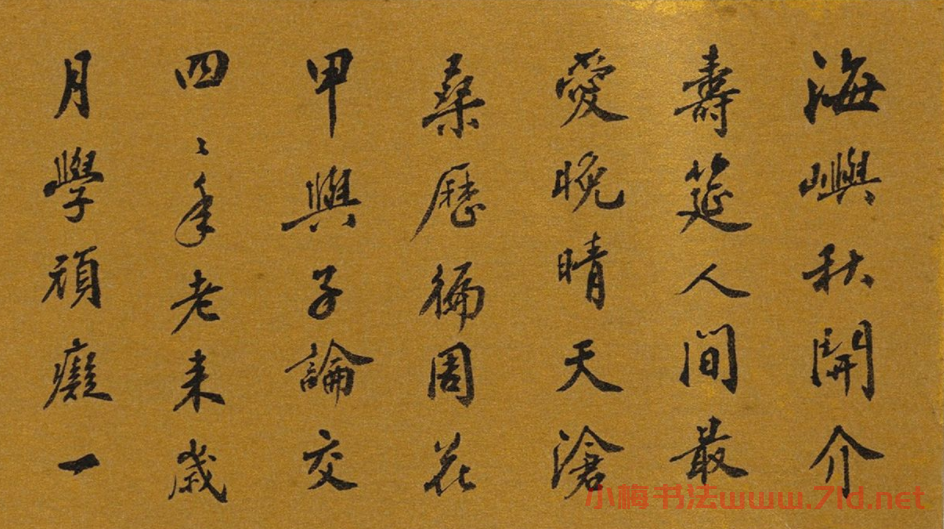 海嶼秋開介
壽筵人間最
愛晚晴天滄
桑歷徧周花
甲與子論交
四十年老來歲
月學頑癡一
小梅书法www.7ld.net